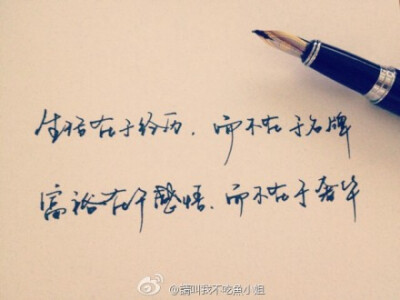 生活在于经历，而不在于名牌
富裕在于感悟，而不在于奢华
@请叫我不吃魚小姐